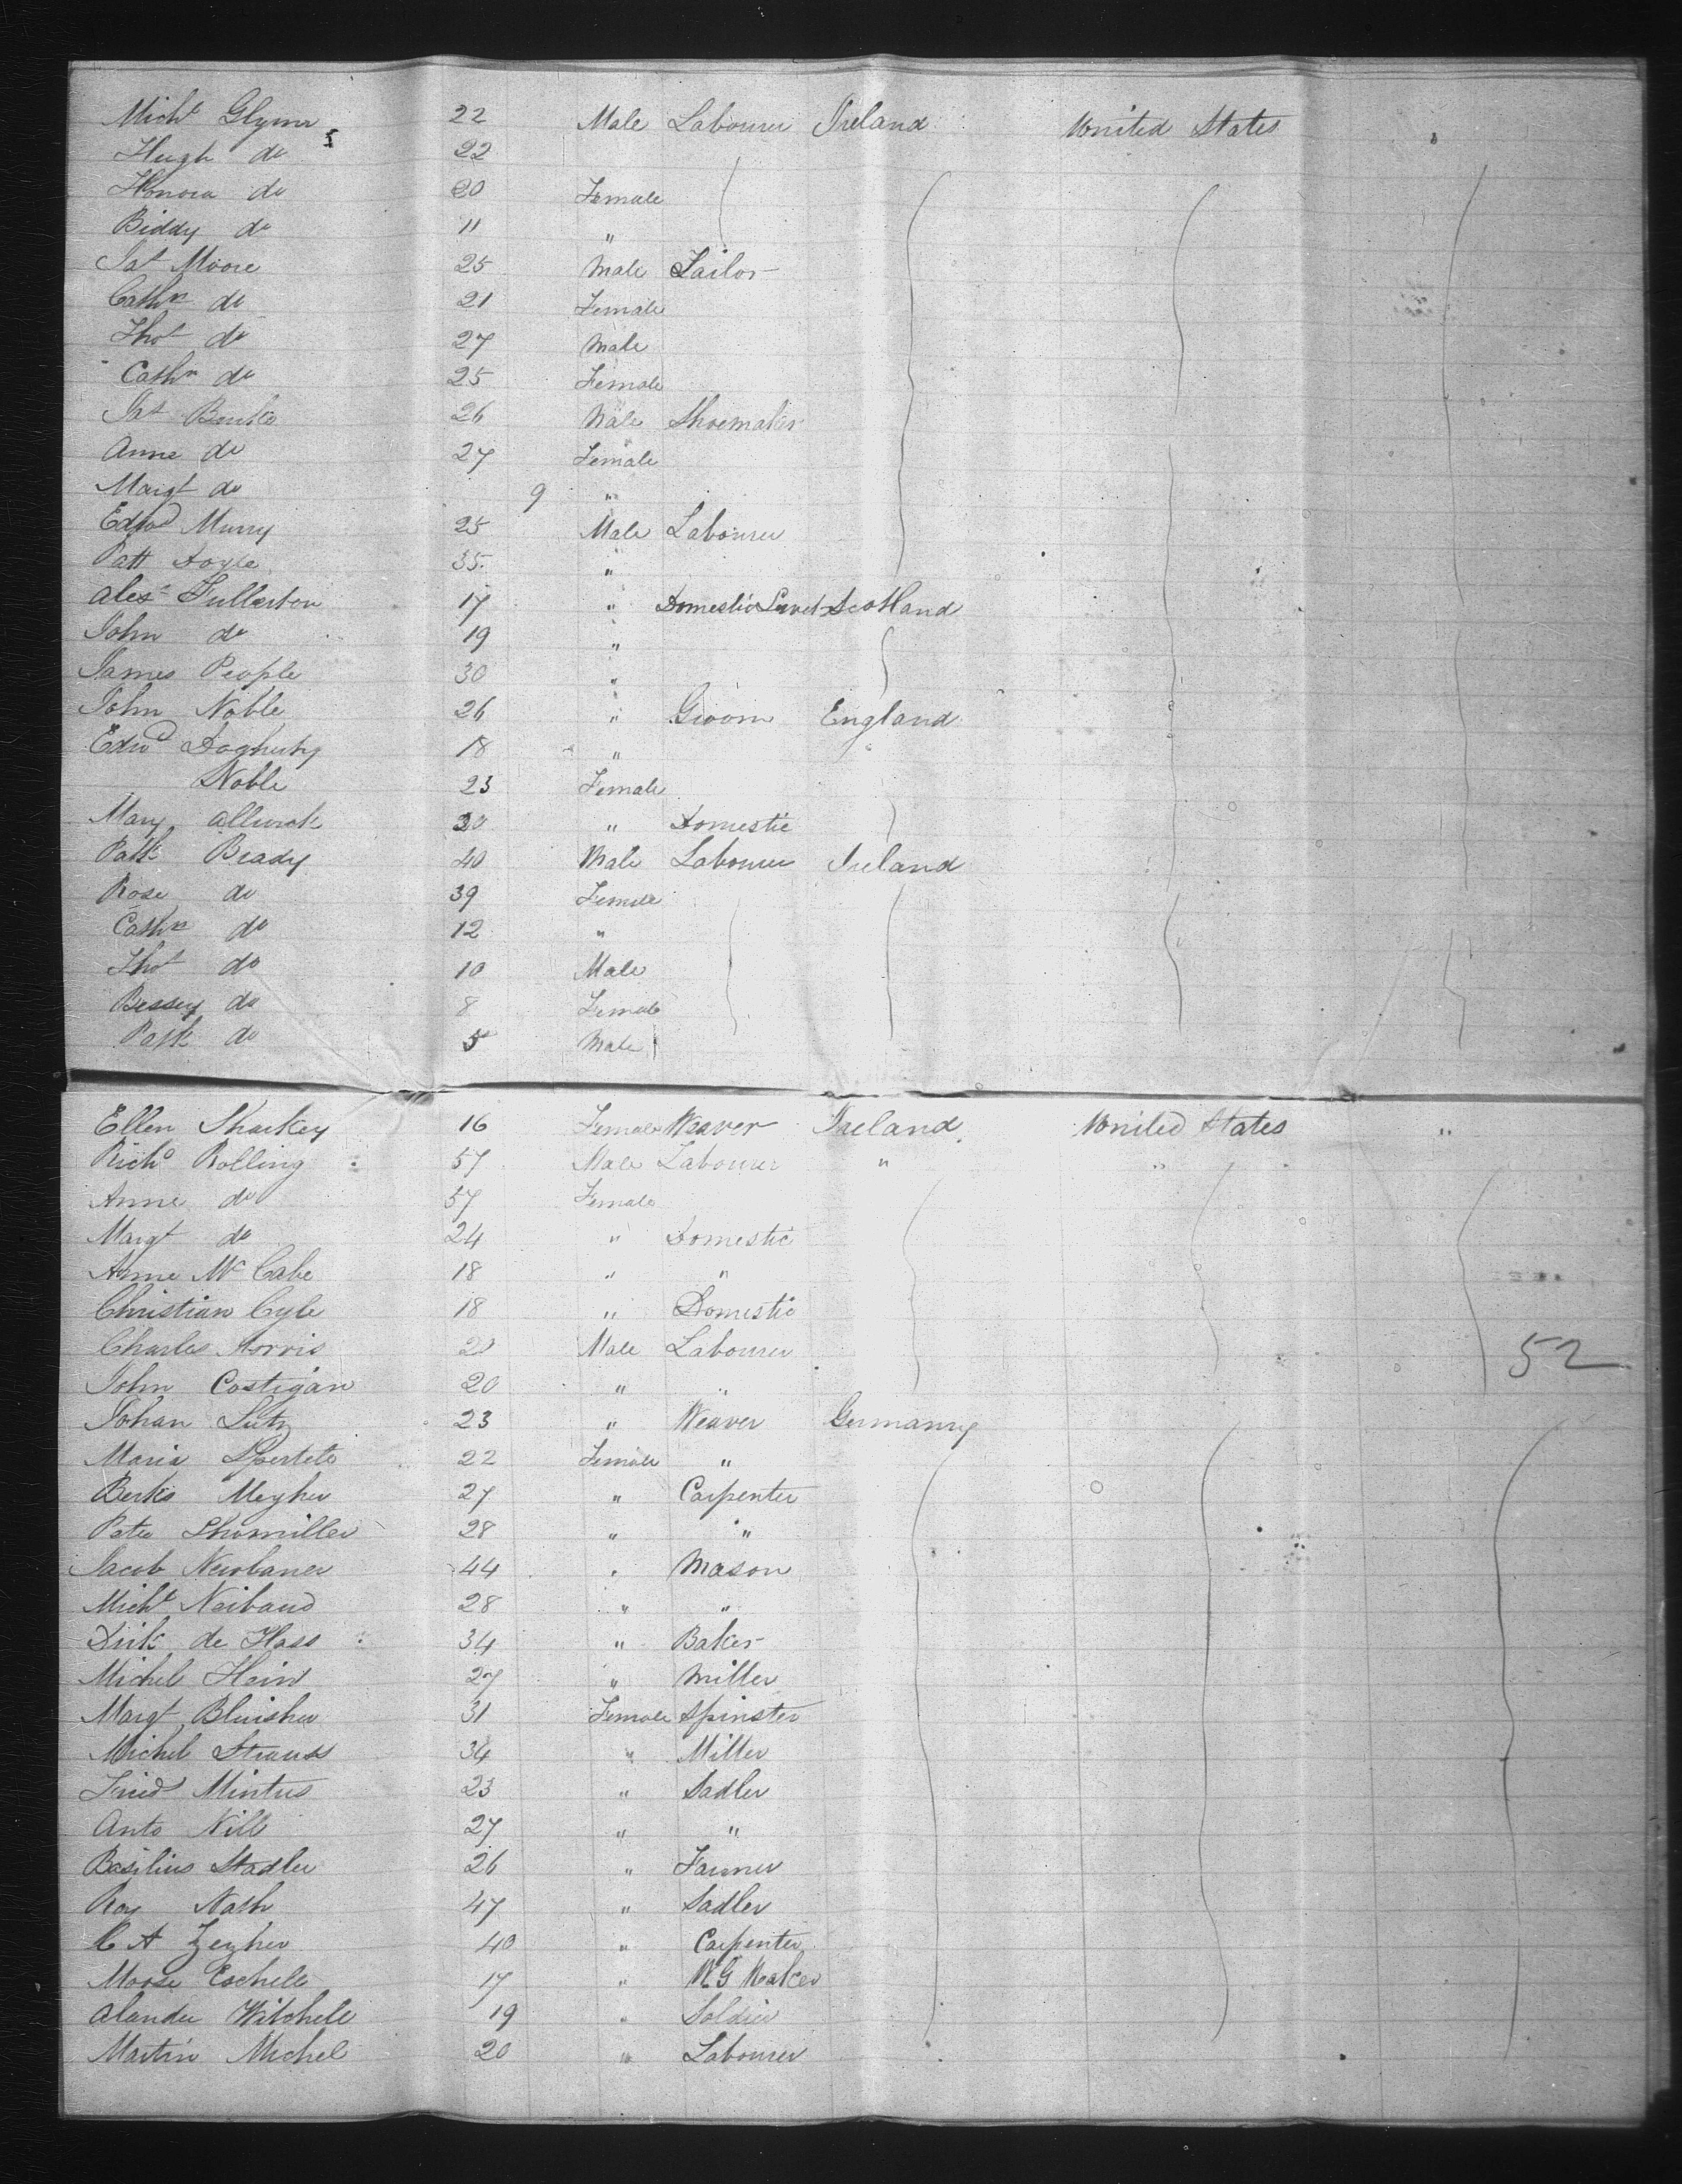 Michl Glynn 22 Male Labourer Ireland United States
Hugh do 22
Honora do 20 Female
Biddy do 11 "
Pat Moore 25 Male Tailor
Cathn do 21 Female
Thos do 27 Male
Cathn do 25 Female
Pat 26 Male Shoemaker
Anne do 27 Female
Margt do 9 "
Edwd Murry 25 Male Labourer
Patt Doyle 35 "
Alexr Fullerton 17 " Domestic Servt Scotland
John do 19 "
James People 30 "
John Noble 26 " Groom England
Edwd Dogherty 18 "
Noble 23 Female
Mary 20 " Domestic
Patk Brady 40 Male Labourer Ireland
Rose do 39 Female
Cathn do 12 "
Thos do 10 Male
Bessey do 8 Female
Patk do 5 Male
Ellen Sharkey 16 Female Weaver Ireland United States "
Richd Rolling 57 Male Labourer " "
Anne do 57 Female
Margt do 24 " Domestic
Anne McCabe 18 " "
Christian Cyle 18 " Domestic
Charles Norris Male Labourer 52
John Costigan 20 " "
Johan Lutz 23 " Weaver Germany
Maria 22 Female "
Meyher 27 " Carpenter
Peter 28 " "
Jacob Newbaner 44 " Mason
Michl Neibaud 28 " "
Dirk de Hass 34 " Baker
Michel Hein 27 " Miller
Margt Bluisher 31 Female Spinster
Michel Strauss 34 " Miller
Fried Mintus 23 " Sadler
Anto Nill 27 " "
Basilius Stadler 26 " Farmer
Roy Nash 47 " Sadler
C A Zeyher 40 " Carpenter
Moose Eschele 17 " W G Maker
Alander Witchele 19 " Soldier
Martin Michel 20 " Labourer